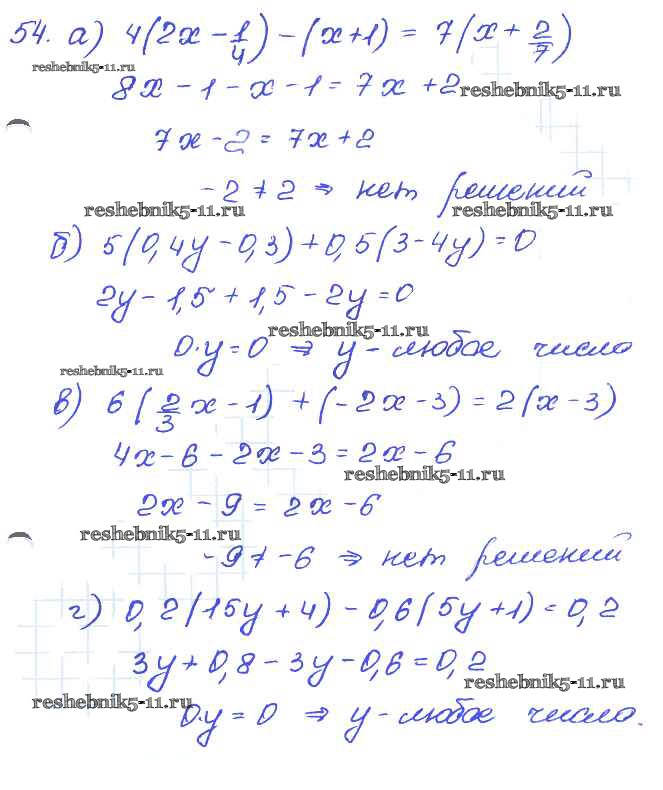 54. а) 4(2x - 1/4) - (x+1) = 7(x + 2/7)
reshebnik5-11.ru
8x - 1 - x - 1 = 7x + 2
reshebnik5-11.ru
7x - 2 = 7x + 2
-2 ≠ 2 ⇒ нет решений
reshebnik5-11.ru reshebnik5-11.ru
б) 5(0,4y - 0,3) + 0,5(3 - 4y) = 0
2y - 1,5 + 1,5 - 2y = 0
reshebnik5-11.ru
0·y = 0 ⇒ y - любое число
reshebnik5-11.ru
в) 6(2/3x - 1) + (-2x - 3) = 2(x - 3)
4x - 6 - 2x - 3 = 2x - 6
reshebnik5-11.ru
2x - 9 = 2x - 6
reshebnik5-11.ru
-9 ≠ -6 ⇒ нет решений
г) 0,2(15y + 4) - 0,6(5y + 1) = 0,2
3y + 0,8 - 3y - 0,6 = 0,2
reshebnik5-11.ru
reshebnik5-11.ru
0·y = 0 ⇒ y - любое число.